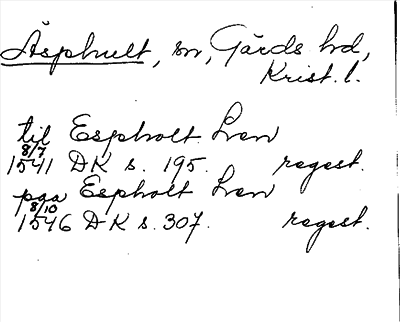 Äsphult, sn, Gärds hd,
Krist. l.
til Espholt Sven
8/7
1541 DK s. 195. regest.
paa Espholt Sven
8/10
1546 DK s. 307. regest.